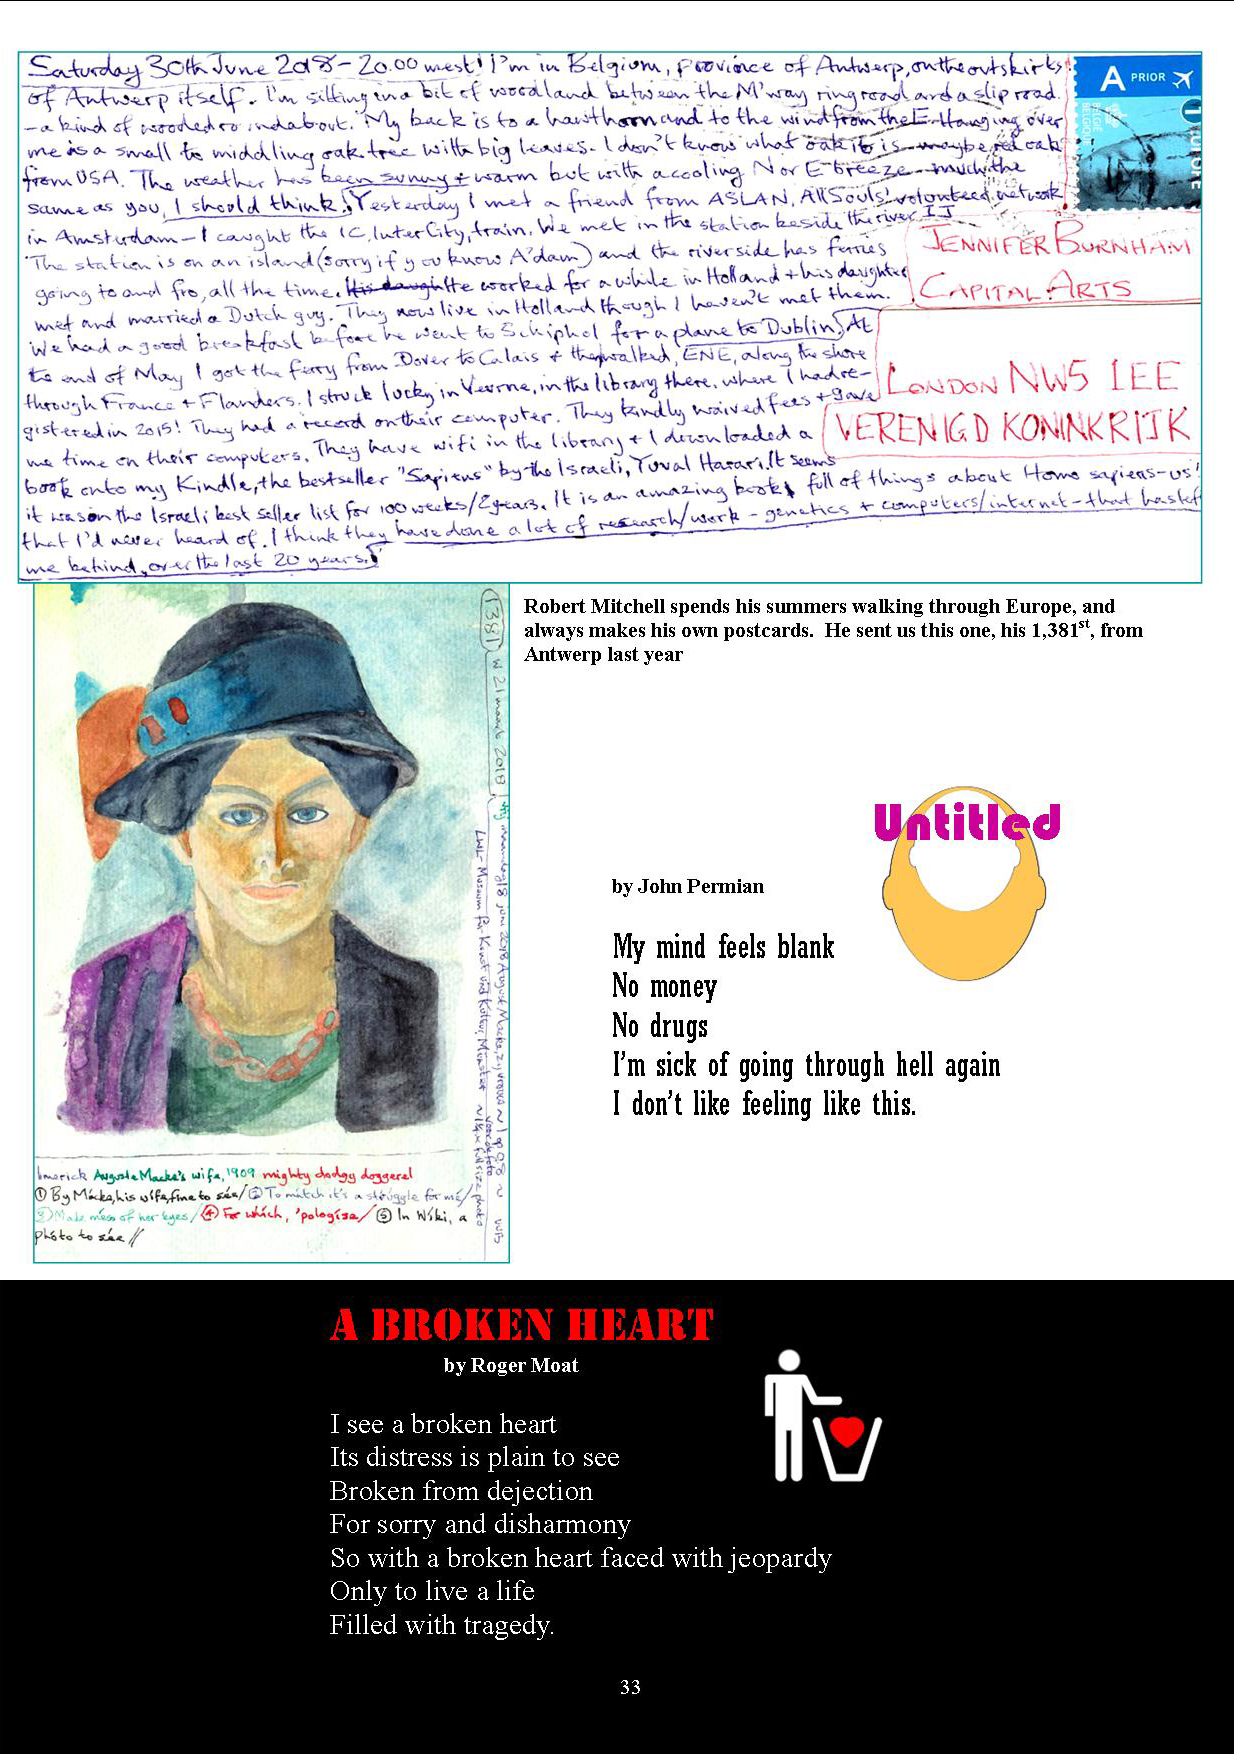 Saturday 30th June 2018 - 20.00 west! I'm in Belgium, province of Antwerp, on the outskirts
of Antwerp itself. I'm sitting in a bit of woodland between the M'way ring road and a slip road.
- a kind of wooded roundabout. My back is to a hawthorn and to the wind from the E. Hanging over
me is a small to middling oak tree with big leaves. I don't know what oak it is - maybe red oak
from USA. The weather has been sunny + warm but with a cooling N or E breeze - much the
same as you, I should think! Yesterday I met a friend from ASLAN, All Souls' volunteed network
in Amsterdam - I caught the IC, InterCity, train. We met in the station beside the river IJ
The station is on an island (sorry if you know A'dam) and the riverside has ferries
going to and fro, all the time. He worked for a while in Holland + his daughter
met and married a Dutch guy. They now live in Holland though I haven't met them.
We had a good breakfast before he went to Schiphol for a plane to Dublin. At
the end of May I got the ferry from Dover to Calais + then walked, ENE, along the shore
through France + Flanders. I struck lucky in Veurne, in the library there, where I had re-
gistered in 2015! They had a record on their computer. They kindly waived fees + gave
me time on their computers. They have wifi in the library + I downloaded a
book onto my Kindle, the bestseller "Sapiens" by the Israeli, Yuval Harari. It seems
it was on the Israeli best seller list for 100 weeks/2 years. It is an amazing book, full of things about Homo sapiens - us!
that I'd never heard of. I think they have done a lot of research/work - genetics + computers/internet - that has left
me behind, over the last 20 years.
A PRIOR
1 EUROPE
JENNIFER BURNHAM
CAPITAL ARTS
LONDON NW5 1EE
VERENIGD KONINKRIJK
1381 W 21 maart 2018
LWL- Museum für Kunst und Kultur, Münster
limerick Auguste Macke's wife, 1909 mighty dodgy doggerel
① By Macke, his wife, fine to see/ ② To match it's a struggle for me/
③ Make mess of her eyes/ ④ For which, 'pologise/ ⑤ In Wiki, a
photo to see //
Robert Mitchell spends his summers walking through Europe, and
always makes his own postcards. He sent us this one, his 1,381st, from
Antwerp last year
Untitled
by John Permian
My mind feels blank
No money
No drugs
I'm sick of going through hell again
I don't like feeling like this.
A BROKEN HEART
by Roger Moat
I see a broken heart
Its distress is plain to see
Broken from dejection
For sorry and disharmony
So with a broken heart faced with jeopardy
Only to live a life
Filled with tragedy.
33